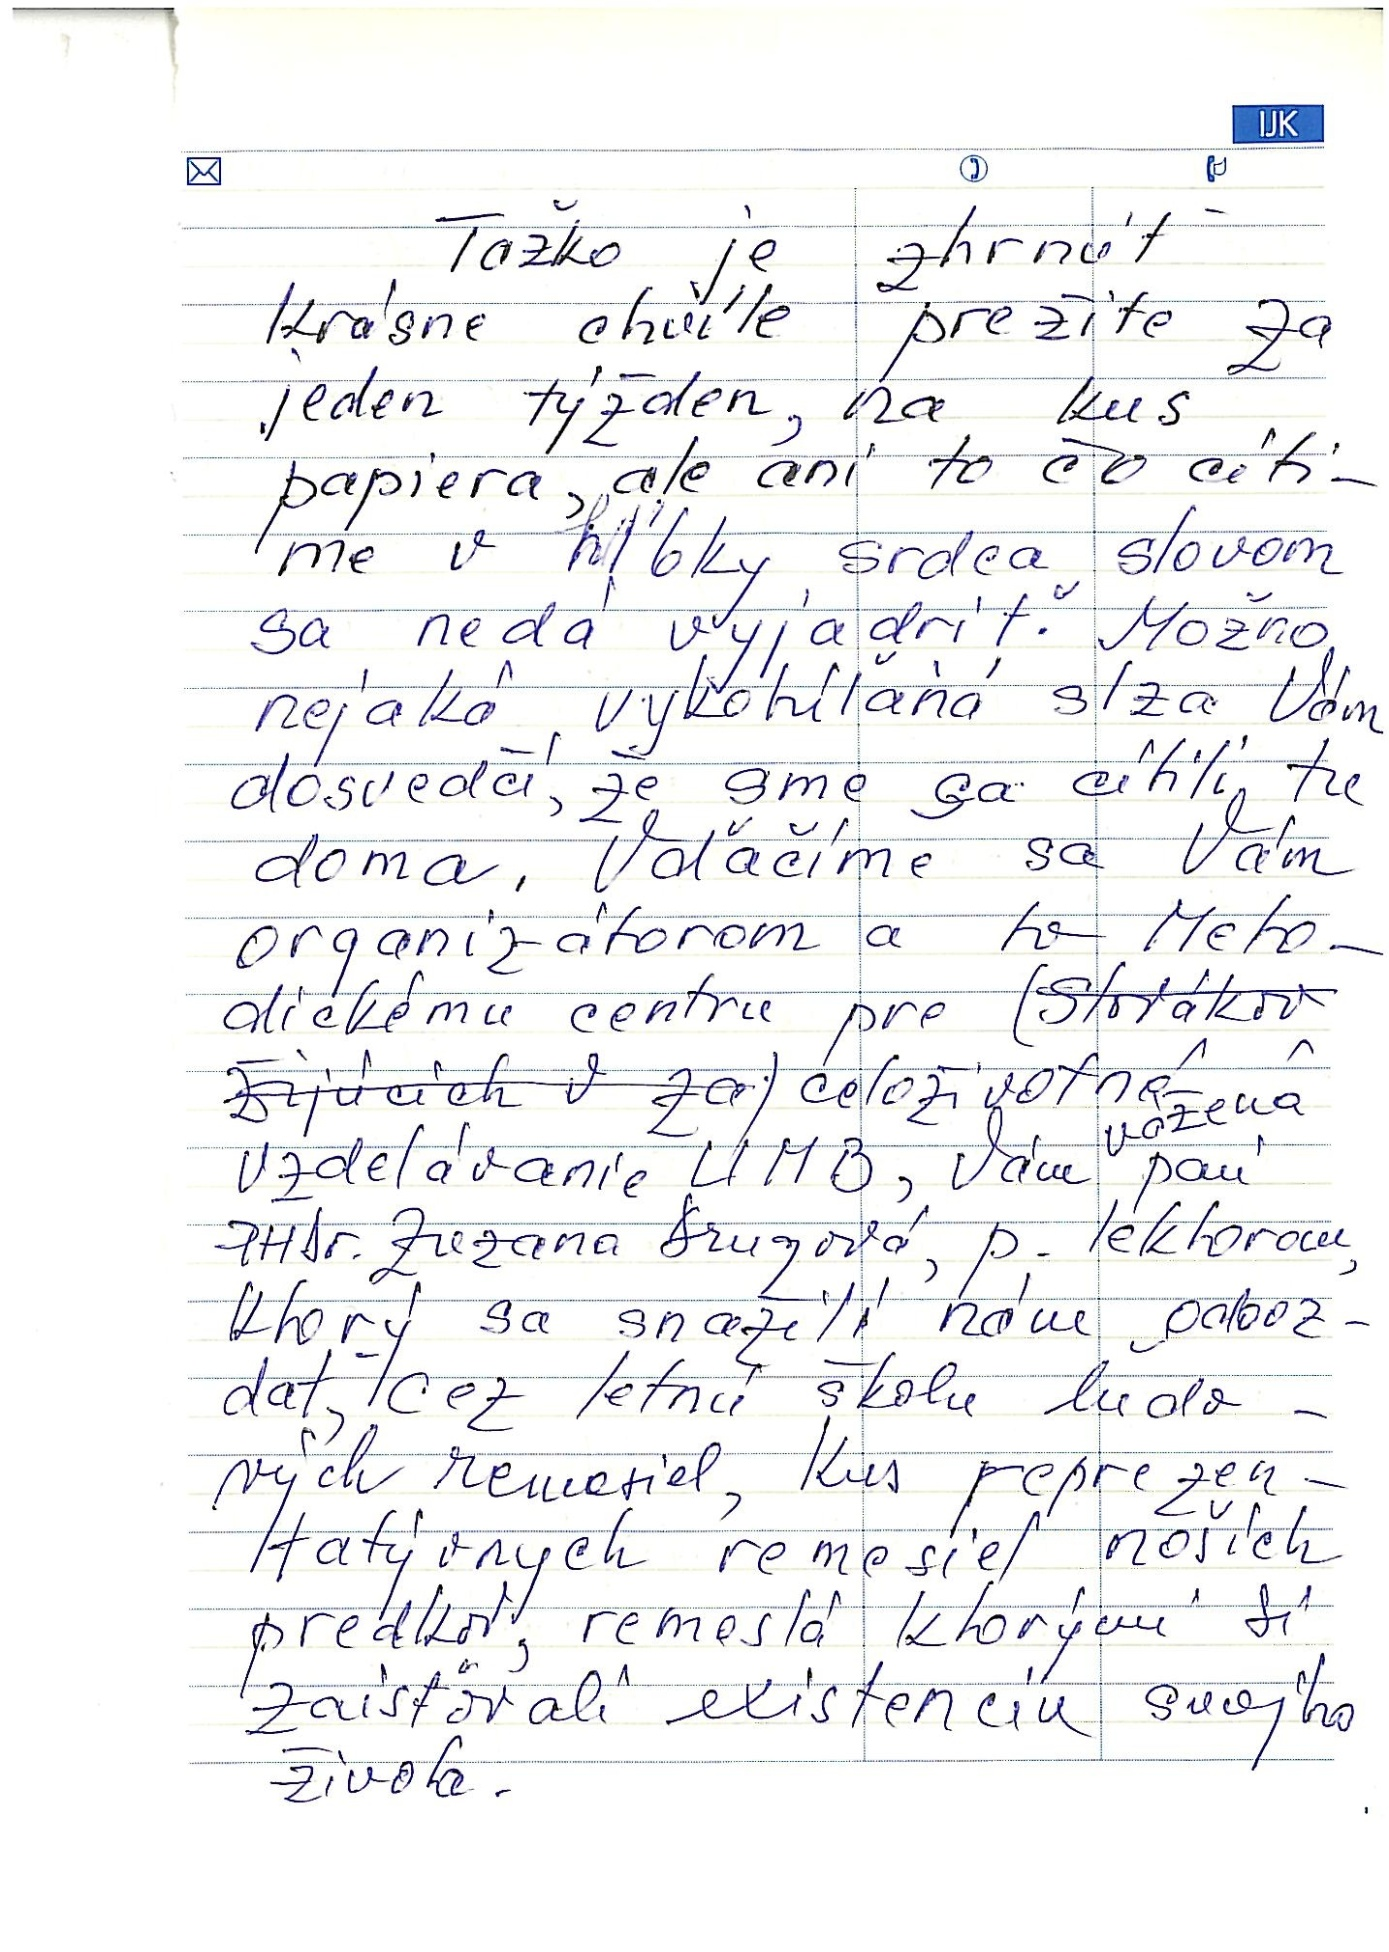 IJK
Tažko je zhrnúť
krásne chvíle prežite za
jeden týžden, na kus
papiera, ale ani to čo cíti-
me v hĺbky srdca slovom
sa nedá vyjádriť. Možno
nejaká vykotúľaňá slza Vám
dosvedčí, že sme sa cítili tu
doma. Vďačíme sa Vám
organizátorom a to Meto-
dickému centru pre (Slovákov
žijúcich v za) celoživotné
vážená
vzdelávanie UMB, Vám pani
PHDr. Zuzana Drugová, p. lektorom,
ktorý sa snažili nám odboz-
dať, cez letnú školu ludo-
vých remesiel, kus reprezen-
tatývnych remesiel nošich
predkov, remeslá ktorými si
zaisťovali existenciu svojho
života.